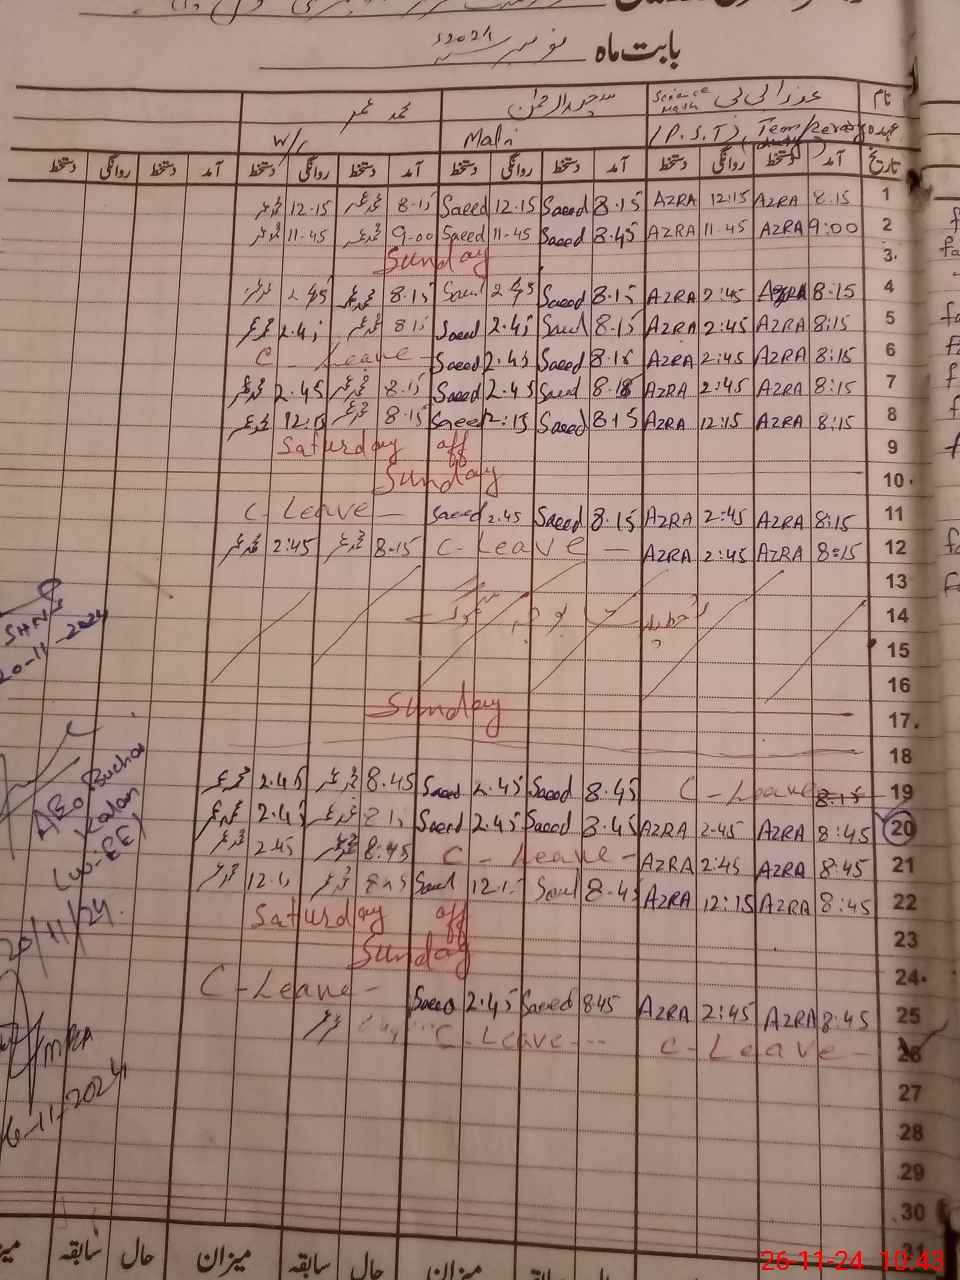 بابت ماہ نومبر 2024
نام عذرا بی بی Science Math سعید الرحمن محمد عمر
عہدہ (P.S.T), Mali W/
تاریخ آمد دستخط روانگی دستخط آمد دستخط روانگی دستخط آمد دستخط روانگی دستخط آمد دستخط روانگی دستخط
1 8.15 AZRA 12:15 AZRA 8.15 Saeed 12.15 Saeed 8.15 محمد عمر 12.15 محمد عمر
2 9:00 AZRA 11.45 AZRA 8.45 Saeed 11-45 Saeed 9.00 محمد عمر 11-45 محمد عمر
3. Sunday
4 8:15 AZRA 2:45 AZRA 8.15 Saeed 2.45 Saeed 8.15 محمد عمر 2.45 محمد عمر
5 8:15 AZRA 2:45 AZRA 8.15 Saeed 2.45 Saeed 8.15 محمد عمر 2.45 محمد عمر
6 8:15 AZRA 2:45 AZRA 8.15 Saeed 2.45 Saeed C - Leave -
7 8:15 AZRA 2:45 AZRA 8.15 Saeed 2.45 Saeed 8.15 محمد عمر 2.45 محمد عمر
8 8:15 AZRA 12:15 AZRA 8.15 Saeed 12:15 Saeed 8.15 محمد عمر 12:15 محمد عمر
9 Saturday off
10. Sunday
11 8:15 AZRA 2:45 AZRA 8.15 Saeed 2.45 Saeed C - Leave -
12 8:15 AZRA 2:45 AZRA C - Leave - 8.15 محمد عمر 2:45 محمد عمر
13
14
15
16
17. Sunday
18
19 C - Leave 8.45 Saeed 2.45 Saeed 8.45 محمد عمر 2.45 محمد عمر
20 8:45 AZRA 2:45 AZRA 8.45 Saeed 2.45 Saeed محمد عمر 2.45 محمد عمر
21 8:45 AZRA 2:45 AZRA C - Leave - 8:45 محمد عمر 2.45 محمد عمر
22 8:45 AZRA 12:15 AZRA 8.45 Saeed 12.15 Saeed 8.45 محمد عمر محمد عمر
23 Saturday off
24. Sunday
25 8:45 AZRA 2:45 AZRA 845 Saeed 2.45 Saeed C - Leave -
26 C - Leave - C - Leave --- عمر
27
28
29
30
31
میزان حال سابقہ میزان حال سابقہ
20-11-2024
AEO Suchai
Kalan
(w-EE)
20/11/24.
MEA
26-11-2024
26-11-24 10:43